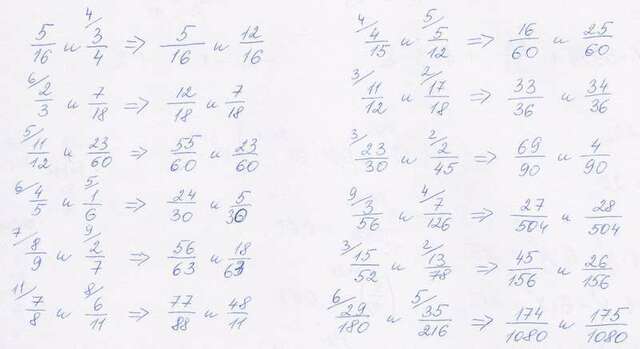 5/16 и 4/ 3/4 ⇒ 5/16 и 12/16
6/ 2/3 и 7/18 ⇒ 12/18 и 7/18
5/ 11/12 и 23/60 ⇒ 55/60 и 23/60
6/ 4/5 и 5/ 1/6 ⇒ 24/30 и 5/30
7/ 8/9 и 9/ 2/7 ⇒ 56/63 и 18/63
11/ 7/8 и 8/ 6/11 ⇒ 77/88 и 48/11
4/ 4/15 и 5/ 5/12 ⇒ 16/60 и 25/60
3/ 11/12 и 2/ 17/18 ⇒ 33/36 и 34/36
3/ 23/30 и 2/ 2/45 ⇒ 69/90 и 4/90
9/ 3/56 и 4/ 7/126 ⇒ 27/504 и 28/504
3/ 15/52 и 2/ 13/78 ⇒ 45/156 и 26/156
6/ 29/180 и 5/ 35/216 ⇒ 174/1080 и 175/1080